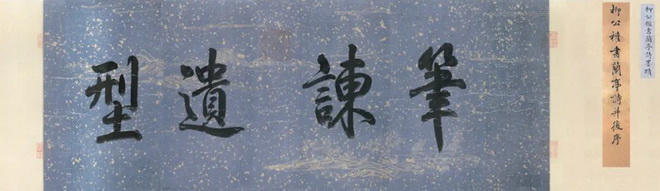 柳公權書蘭亭詩墨蹟
柳公權書蘭亭詩并後序
筆諫遺型